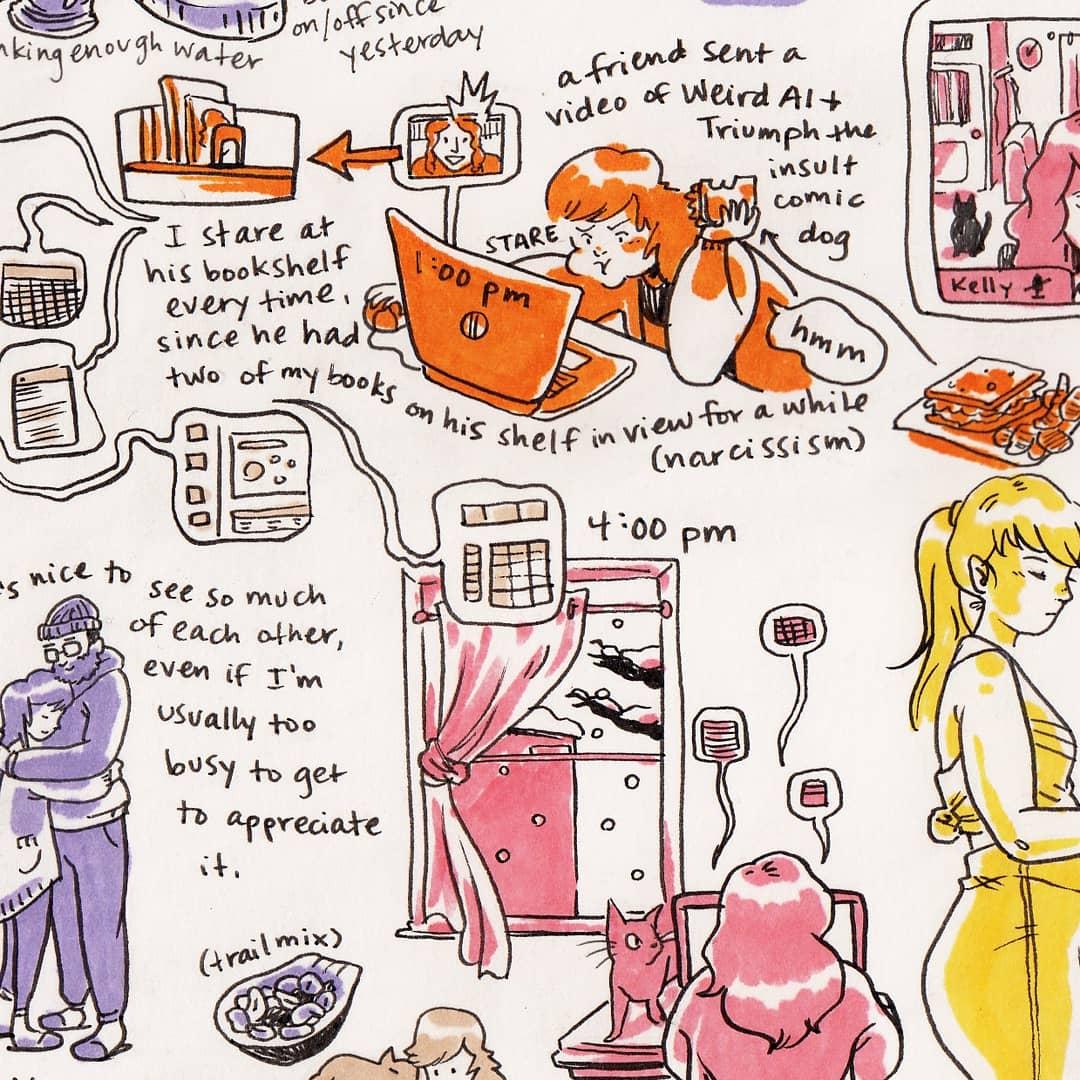 enough water
on/off since
yesterday
a friend sent a
video of Weird Al +
Triumph the
insult
comic
dog
Kelly
STARE
1:00 pm
hmm
I stare at
his bookshelf
every time,
since he had
two of my books on his shelf in view for a while
(narcissism)
4:00 pm
nice to
see so much
of each other,
even if I'm
usually too
busy to get
to appreciate
it.
(trail mix)